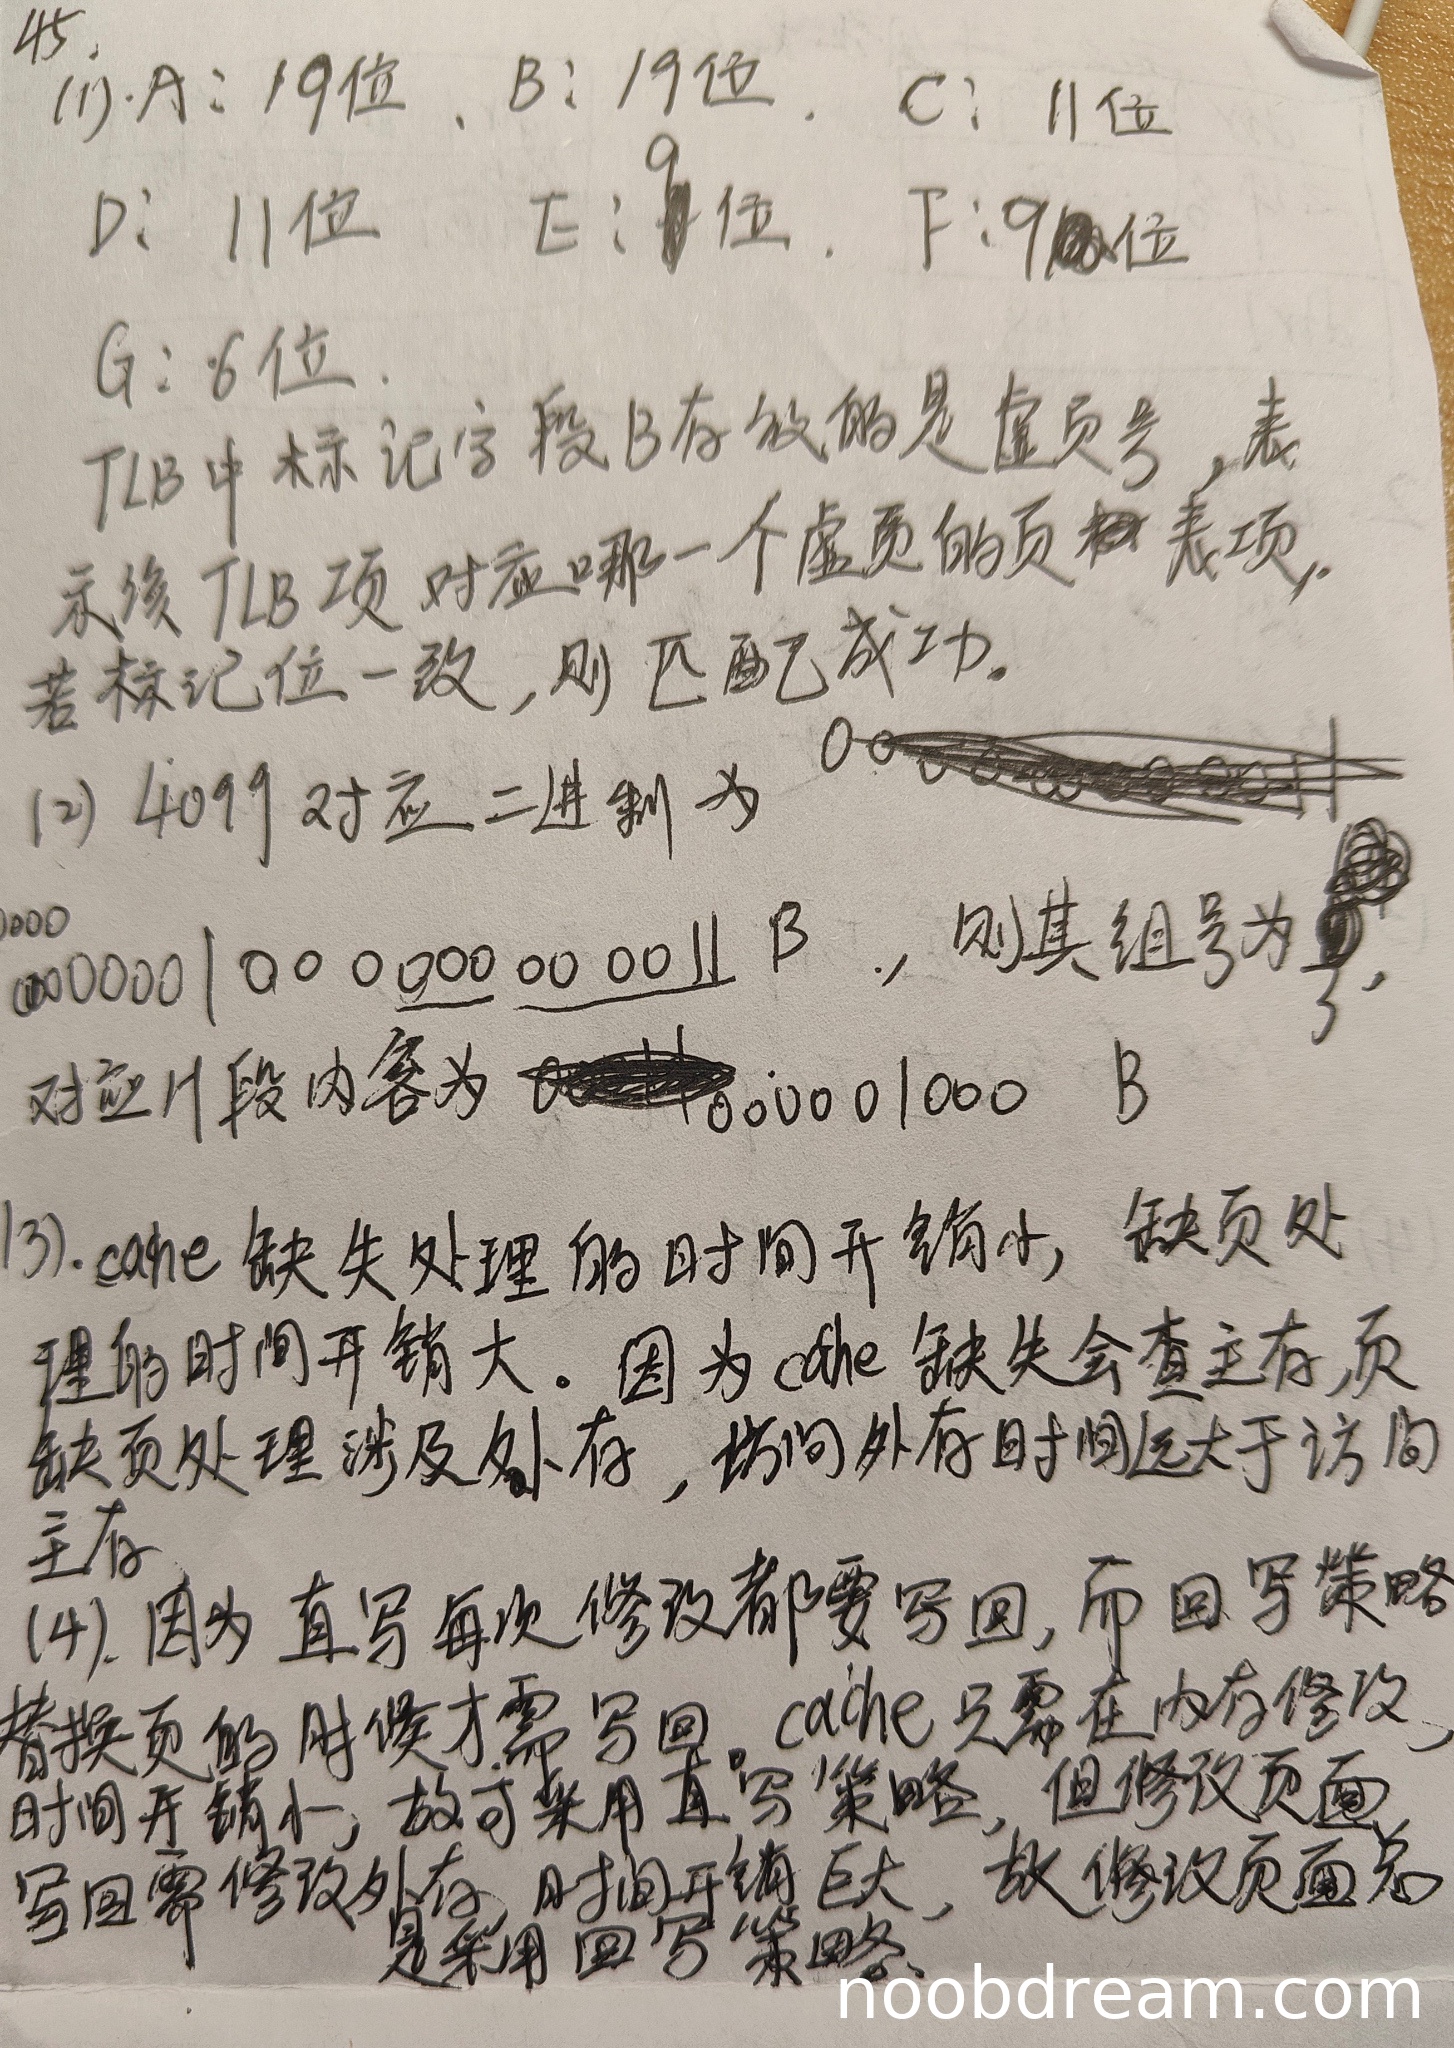 45.
(1).A: 19位. B: 19位. C: 11位
D: 11位 E: 9位. F: 9位
G: 6位.
TLB中标记字段B存放的是虚页号,表
示该TLB项对应哪一个虚页的页表项.
若标记位一致,则匹配成功。
(2) 4099对应二进制为
0000
000001000000000011B.,则其组号为3,
对应H段内容为000001000 B
(3).cache缺失处理的时间开销小,缺页处
理的时间开销大。因为cache缺失会查主存,页
缺页处理涉及外存,访问外存时间远大于访问
主存
(4).因为直写每次修改都要写回,而回写策略
替换页的时候才需写回。cache只需在内存修改,
时间开销小,故可采用直写策略,但修改页面
写回需修改外存,时间开销巨大,故修改页面总
是采用回写策略.
noobdream.com